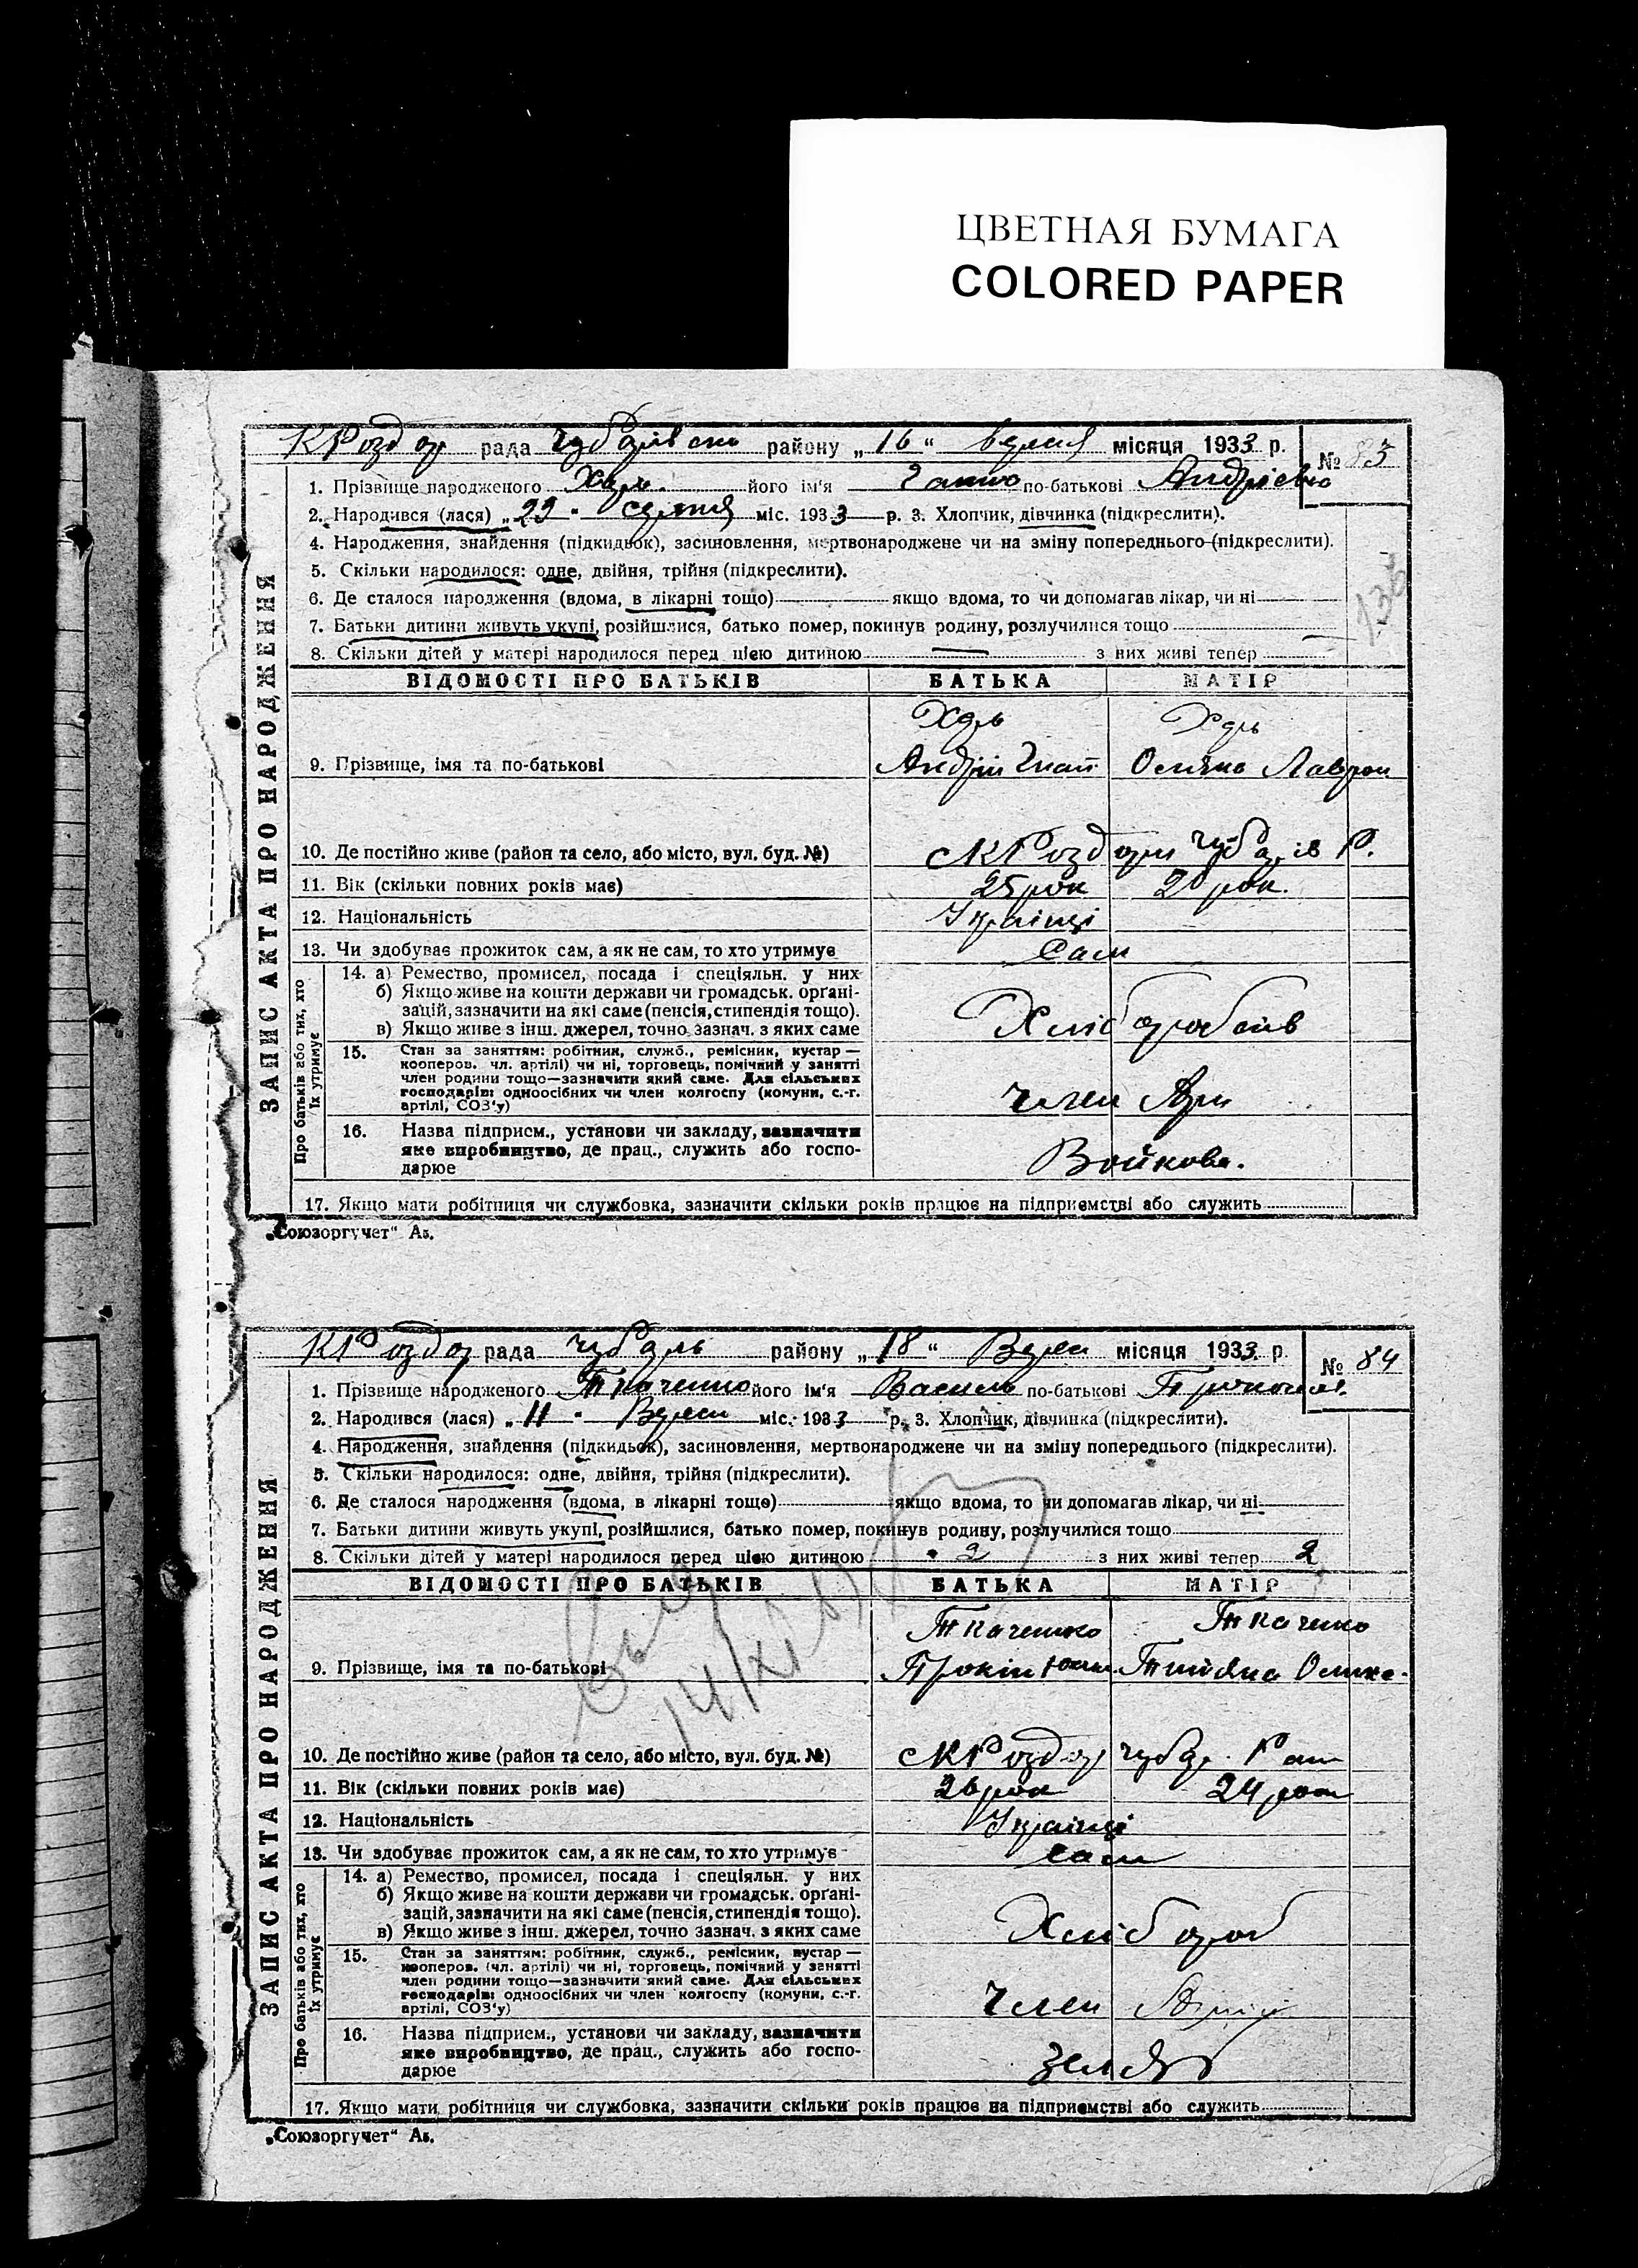 ЦВЕТНАЯ БУМАГА
COLORED PAPER
КРоздор рада Чубарівсь району „16“ Вересня місяця 1933 р. № 83
1. Прізвище народженого його ім'я по-батькові Андріївна
2. Народився (лася) „29“ серпня міс. 1933 р. 3. Хлопчик, дівчинка (підкреслити).
4. Народження, знайдення (підкидьок), засиновлення, мертвонароджене чи на зміну попереднього (підкреслити).
5. Скільки народилося: одне, двійня, трійня (підкреслити).
6. Де сталося народження (вдома, в лікарні тощо) якщо вдома, то чи допомагав лікар, чи ні
136
7. Батьки дитини живуть укупі, розійшлися, батько помер, покинув родину, розлучилися тощо
8. Скільки дітей у матері народилося перед цією дитиною — з них живі тепер
ВІДОМОСТІ ПРО БАТЬКІВ БАТЬКА МАТІР
9. Прізвище, імя та по-батькові Андрій Гнат Лаврон
10. Де постійно живе (район та село, або місто, вул. буд. №) сКРоздори Чубарів Р.
11. Вік (скільки повних років має) 25 рок 20 рок.
12. Національність Українці
13. Чи здобуває прожиток сам, а як не сам, то хто утримує Сам
14. а) Ремество, промисел, посада і спеціяльн. у них
б) Якщо живе на кошти держави чи громадськ. органі-
зацій, зазначити на які саме (пенсія, стипендія тощо).
в) Якщо живе з інш. джерел, точно зазнач. з яких саме
Хліборобств
15. Стан за заняттям: робітник, служб., ремісник, кустар —
кооперов. чл. артілі) чи ні, торговець, помічний у занятті
член родини тощо—зазначити який саме. Для сільських
господарів: одноосібних чи член колгоспу (комуни, с.-г.
артілі, СОЗ'у)
член Арт
16. Назва підприєм., установи чи закладу, зазначити
яке виробництво, де прац., служить або госпо-
дарює
Войкова.
17. Якщо мати робітниця чи службовка, зазначити скільки років працює на підприємстві або служить
ЗАПИС АКТА ПРО НАРОДЖЕННЯ
Про батьків або тих, хто їх утримує
„Союзоргучет“ Аз.
КРоздор рада Чубарь району „18“ Верес місяця 1933 р. № 84
1. Прізвище народженого Ткаченко його ім'я Василь по-батькові Прокопов.
2. Народився (лася) „11“ Верес міс. 1933 р. 3. Хлопчик, дівчинка (підкреслити).
4. Народження, знайдення (підкидьок), засиновлення, мертвонароджене чи на зміну попереднього (підкреслити).
5. Скільки народилося: одне, двійня, трійня (підкреслити).
6. Де сталося народження (вдома, в лікарні тощо) якщо вдома, то чи допомагав лікар, чи ні
7. Батьки дитини живуть укупі, розійшлися, батько помер, покинув родину, розлучилися тощо
8. Скільки дітей у матері народилося перед цією дитиною 2 з них живі тепер 2
ВІДОМОСТІ ПРО БАТЬКІВ БАТЬКА МАТІР
Ткаченко Ткаченко
9. Прізвище, імя та по-батькові Прокіп Титяна
10. Де постійно живе (район та село, або місто, вул. буд. №) сКРоздор Чубар. Рай
11. Вік (скільки повних років має) 26 рок 24 рок
12. Національність Українці
13. Чи здобуває прожиток сам, а як не сам, то хто утримує Сам
14. а) Ремество, промисел, посада і спеціяльн. у них
б) Якщо живе на кошти держави чи громадськ. органі-
зацій, зазначити на які саме (пенсія, стипендія тощо).
в) Якщо живе з інш. джерел, точно зазнач. з яких саме
Хлібороб
15. Стан за заняттям: робітник, служб., ремісник, кустар —
кооперов. (чл. артілі) чи ні, торговець, помічний у занятті
член родини тощо—зазначити який саме. Для сільських
господарів: одноосібних чи член колгоспу (комуни, с.-г.
артілі, СОЗ'у)
Член
16. Назва підприєм., установи чи закладу, зазначити
яке виробництво, де прац., служить або госпо-
дарює
17. Якщо мати робітниця чи службовка, зазначити скільки років працює на підприємстві або служить
ЗАПИС АКТА ПРО НАРОДЖЕННЯ
Про батьків або тих, хто їх утримує
„Союзоргучет“ Аз.